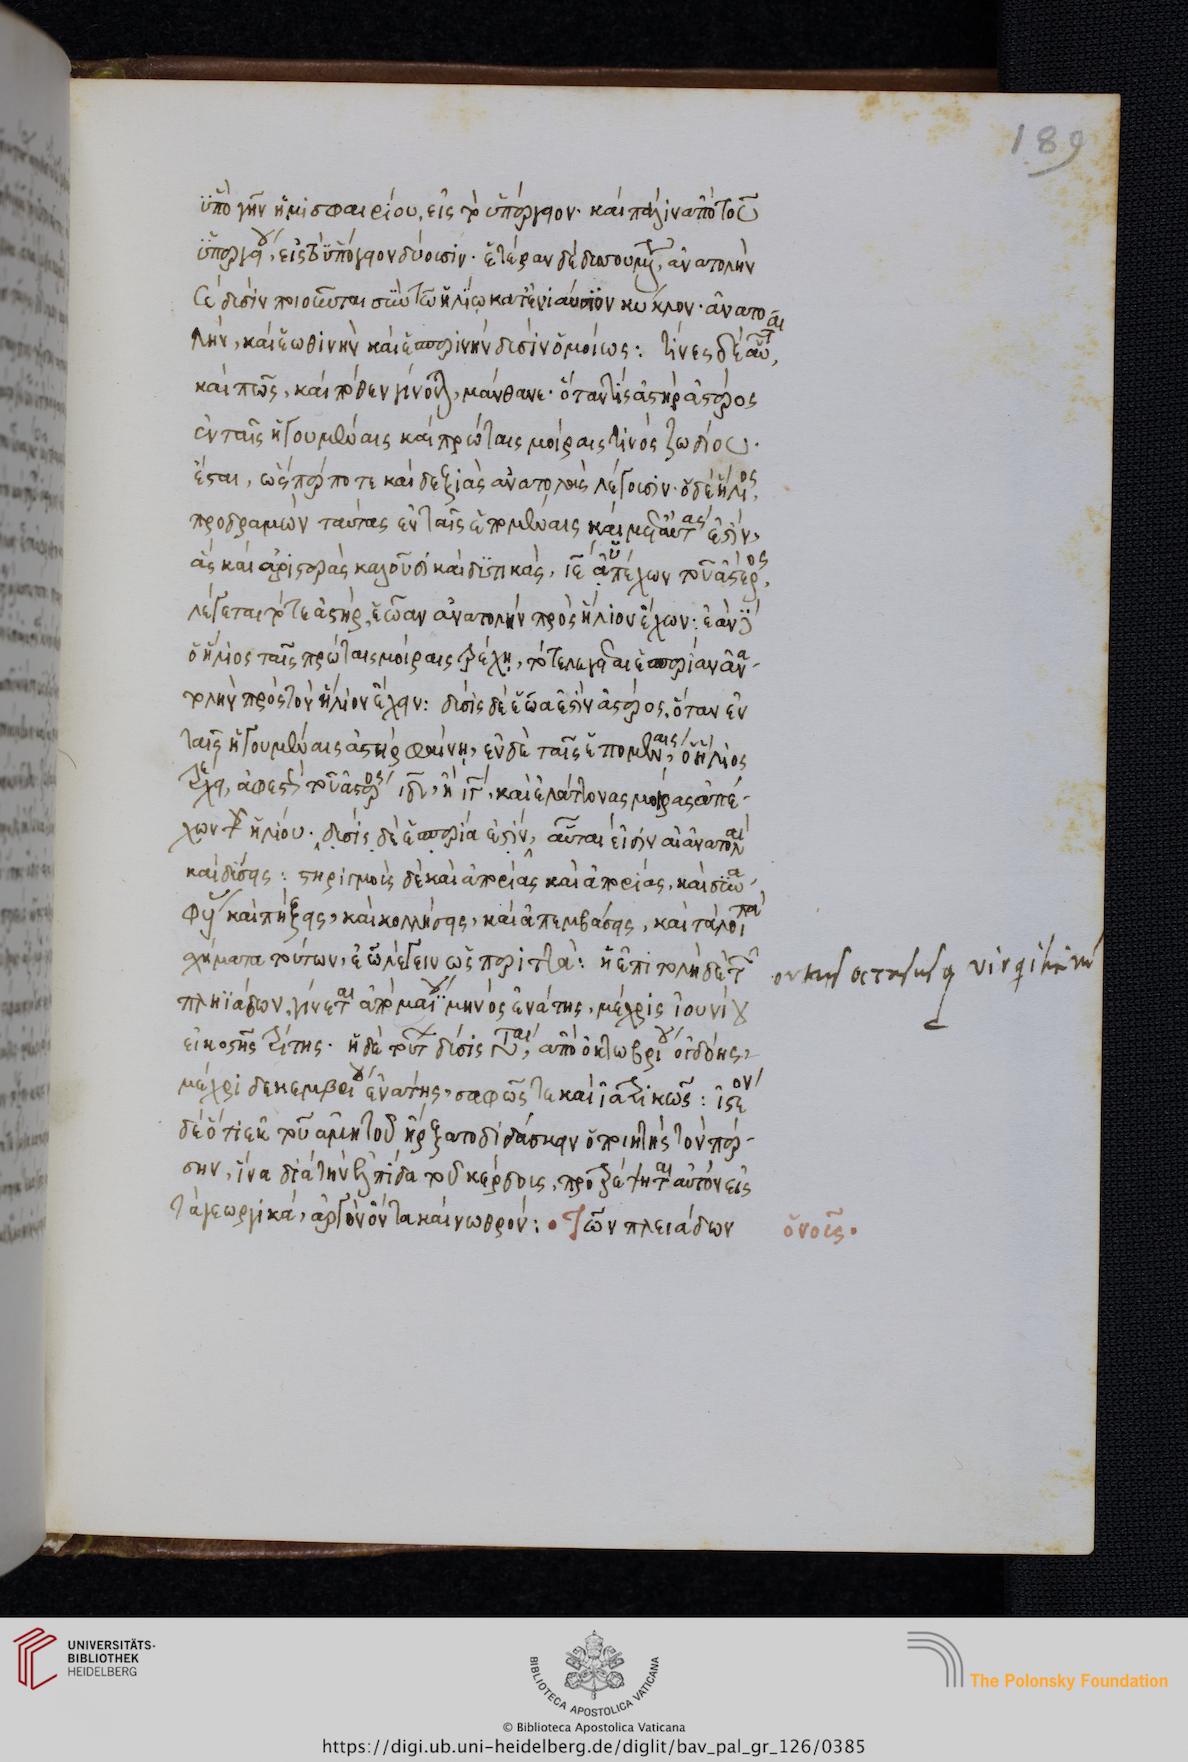 189
ὑπὸ γῆν ἡμισφαιρίου, εἰς τὸ ὑπέργειον· καὶ πάλιν ἀπὸ τοῦ
ὑπεργείου, εἰς τὸ ὑπόγειον δύουσιν· ἑτέραν δὲ ἀνατολὴν
καὶ δύσιν ποιοῦνται σὺν τῶ ἡλίω κατ' ἐνιαύσιον κύκλον· ἀνατο
λὴν, καὶ ἑωθινὴν καὶ ἑσπερινὴν δύσιν ὁμοίως: τίνες δὲ αὗται,
καὶ πῶς, καὶ πόθεν γίνονται, μάνθανε· ὅταν τις ἀστὴρ ἀστέρος
ἐν ταῖς ἡγουμέναις καὶ πρώταις μοίραις τινὸς ζωδίου·
ἔσται, καὶ δεξιὰς ἀνατολὰς λέγουσιν· ὁ δὲ ἥλιος,
προδραμὼν ταύτας ἐν ταῖς ἑπομέναις καὶ μετ' αὐτάς ἐστιν,
ἃς καὶ ἀριστερὰς καλοῦσι καὶ δυτικάς, ιε ἀπέχων τοῦ ἀστέρος,
λέγεται τότε ἀστὴρ, ἑώαν ἀνατολὴν πρὸς ἥλιον ἔχων: ἐὰν
ὁ ἥλιος ταῖς πρώταις μοίραις τρέχη, τότε ἑσπερίαν ἀνα-
τολὴν πρὸς τὸν ἥλιον ἔχειν: δύσις δὲ ἑώα ἐστὶν ἀστέρος, ὅταν ἐν
ταῖς ἡγουμέναις ἀστὴρ φαίνη, ἐν δὲ ταῖς ἑπομέναις, ὁ ἥλιος
τρέχει, τοῦ ἀστέρος ἢ ιγ, καὶ ἐλάττονας μοίρας ἀπέ-
χων τοῦ ἡλίου· δύσις δὲ ἑσπερία ἐστίν, αὗται εἰσὶν αἱ ἀνατολαὶ
καὶ δύσεις: στηριγμοὺς δὲ καὶ καὶ ἀπορείας, καὶ συνα
φὰς καὶ πήξεις, καὶ κολλήσεις, καὶ ἀπεμβάσεις, καὶ τὰ λοιπὰ
σχήματα τούτων, ἐῶ λέγειν ὡς περιττά: ἡ ἐπιτολὴ δὲ τῶν
πληϊάδων, γίνεται ἀπὸ μαΐου μηνὸς ἐνάτης, μέχρις ἰουνίου
εἰκοστῆς τρίτης· ἡ δὲ τούτων δύσις γίνεται, ἀπὸ ὀκτωβρίου ὀγδόης,
μέχρι δεκεμβρίου ἐνάτης, σαφῶς τε καὶ ἰατρικῶς: ἰστέον
δὲ ὅτι ἐκ τοῦ ἀμητοῦ ἤρξατο διδάσκειν ὁ ποιητὴς τὸν πέρ-
σην, ἵνα διὰ τὴν ἐλπίδα τοῦ κέρδους, προτρέψηται αὐτὸν εἰς
τὰ γεωργικά, ἀργὸν ὄντα καὶ νωθρόν: • Τῶν πλειάδων
ortus occasusq virgiliarum
ὄνοις·
UNIVERSITÄTS-
BIBLIOTHEK
HEIDELBERG
BIBLIOTECA APOSTOLICA VATICANA
© Biblioteca Apostolica Vaticana
The Polonsky Foundation
https://digi.ub.uni-heidelberg.de/diglit/bav_pal_gr_126/0385